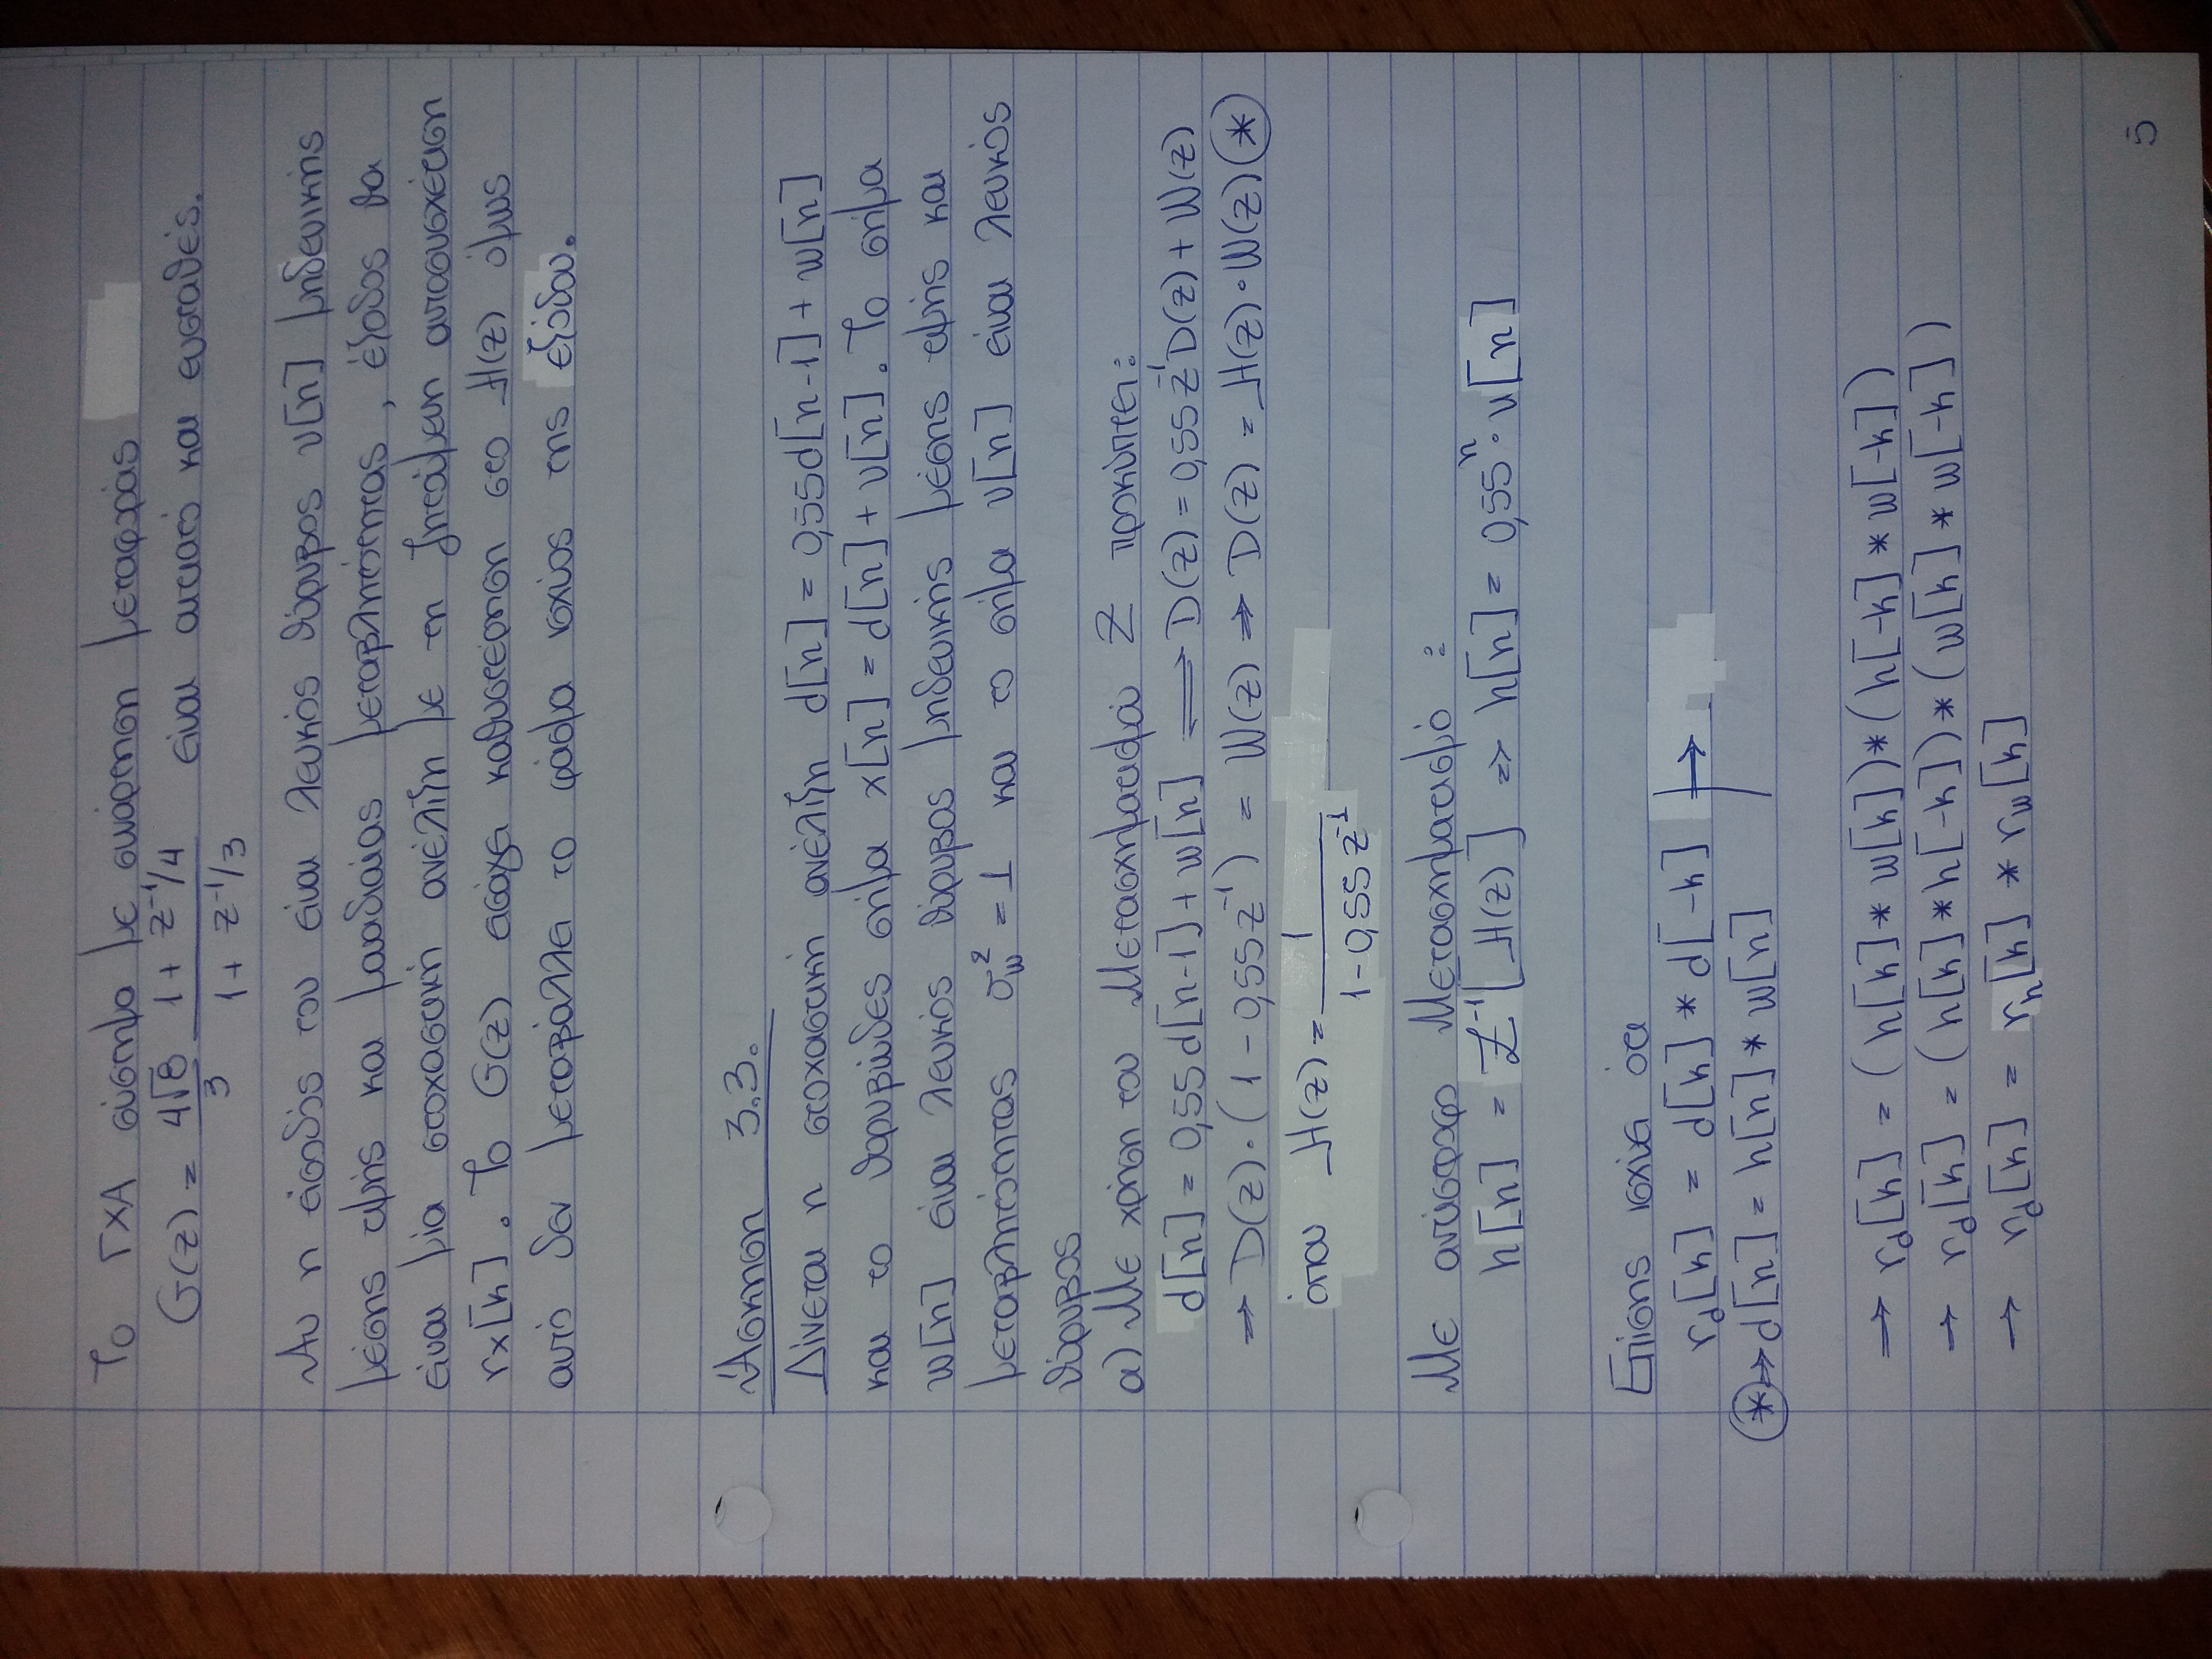 Το ΓΧΑ σύστημα με συνάρτηση μεταφοράς
G(z) = 4√8/3 (1 + z⁻¹/4)/(1 + z⁻¹/3) είναι αιτιατό και ευσταθές.
Αν η είσοδός του είναι λευκός θόρυβος v[n] μηδενικής
μέσης τιμής και μοναδιαίας μεταβλητότητας, έξοδος θα
είναι μία στοχαστική ανέλιξη με τη ζητούμενη αυτοσυσχέτιση
rx[k]. Το G(z) εισάγει καθυστέρηση στο H(z) όμως
αυτό δεν μεταβάλλει το φάσμα ισχύος της εξόδου.
Άσκηση 3.3.
Δίνεται η στοχαστική ανέλιξη d[n] = 0,55d[n-1] + w[n]
και το θορυβώδες σήμα x[n] = d[n] + v[n]. Το σήμα
w[n] είναι λευκός θόρυβος μηδενικής μέσης τιμής και
μεταβλητότητας σw² = 1 και το σήμα v[n] είναι λευκός
θόρυβος
α) Με χρήση του Μετασχηματισμού Z προκύπτει:
d[n] = 0,55d[n-1] + w[n] ⟹ D(z) = 0,55z⁻¹D(z) + W(z)
⇒ D(z)·(1 - 0,55z⁻¹) = W(z) ⇒ D(z) = H(z)·W(z) (*)
όπου H(z) = 1/(1 - 0,55z⁻¹)
Με αντίστροφο Μετασχηματισμό :
h[n] = Z⁻¹[H(z)] ⇒ h[n] = 0,55ⁿ·u[n]
Επίσης ισχύει ότι
rd[k] = d[k] * d[-k] →
(*) ⇒ d[n] = h[n] * w[n]
→ rd[k] = (h[k] * w[k]) * (h[-k] * w[-k])
→ rd[k] = (h[k] * h[-k]) * (w[k] * w[-k])
→ rd[k] = rh[k] * rw[k]
5